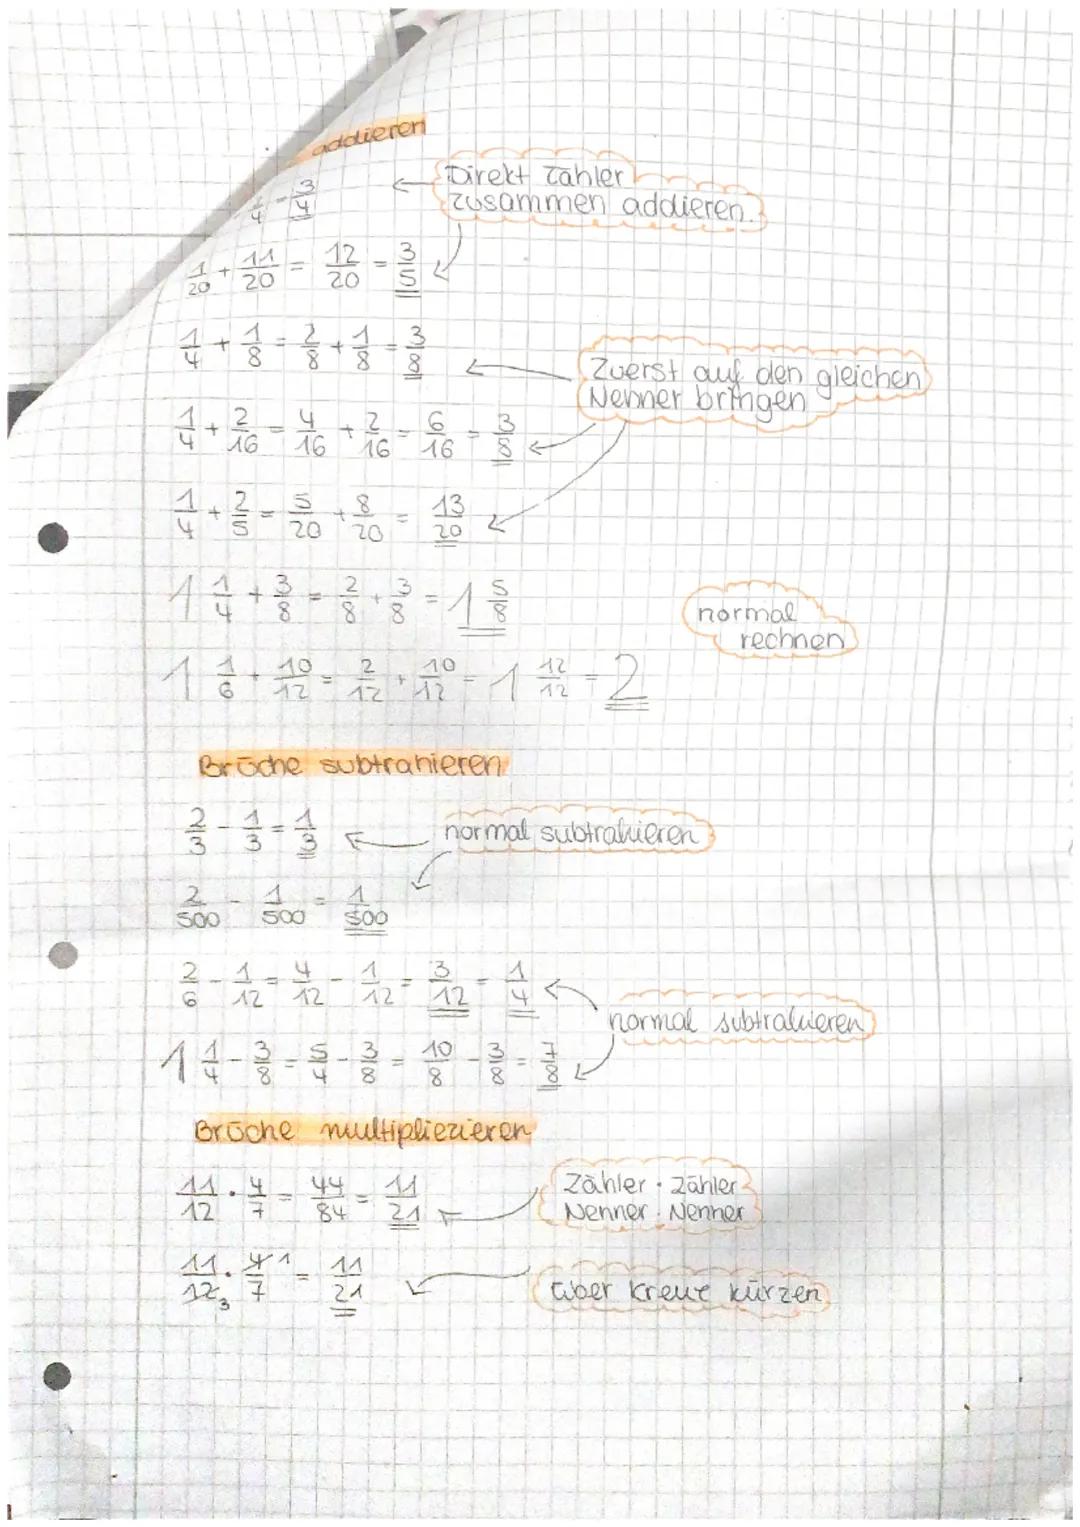 addieren
1/4 = 3/4
Direkt Zähler
zusammen addieren.
1/20 + 11/20 = 12/20 = 3/5
1/4 + 1/8 = 2/8 + 1/8 = 3/8
Zuerst auf den gleichen
Nenner bringen
1/4 + 2/16 = 4/16 + 2/16 = 6/16 = 3/8
1/4 + 2/5 = 5/20 + 8/20 = 13/20
1 1/4 + 3/8 = 2/8 + 3/8 = 1 5/8
normal
rechnen
1 1/6 + 10/12 = 2/12 + 10/12 = 1 12/12 = 2
Brüche subtrahieren
2/3 - 1/3 = 1/3
normal subtrahieren
2/500 - 1/500 = 1/500
2/6 - 1/12 = 4/12 - 1/12 = 3/12 = 1/4
normal subtrahieren
1 1/4 - 3/8 = 5/4 - 3/8 = 10/8 - 3/8 = 7/8
Brüche multiplizieren
11/12 · 4/7 = 44/84 = 11/21
Zähler · Zähler
Nenner · Nenner
11/12 3 · 4 1/7 = 11/21
über kreuz kürzen